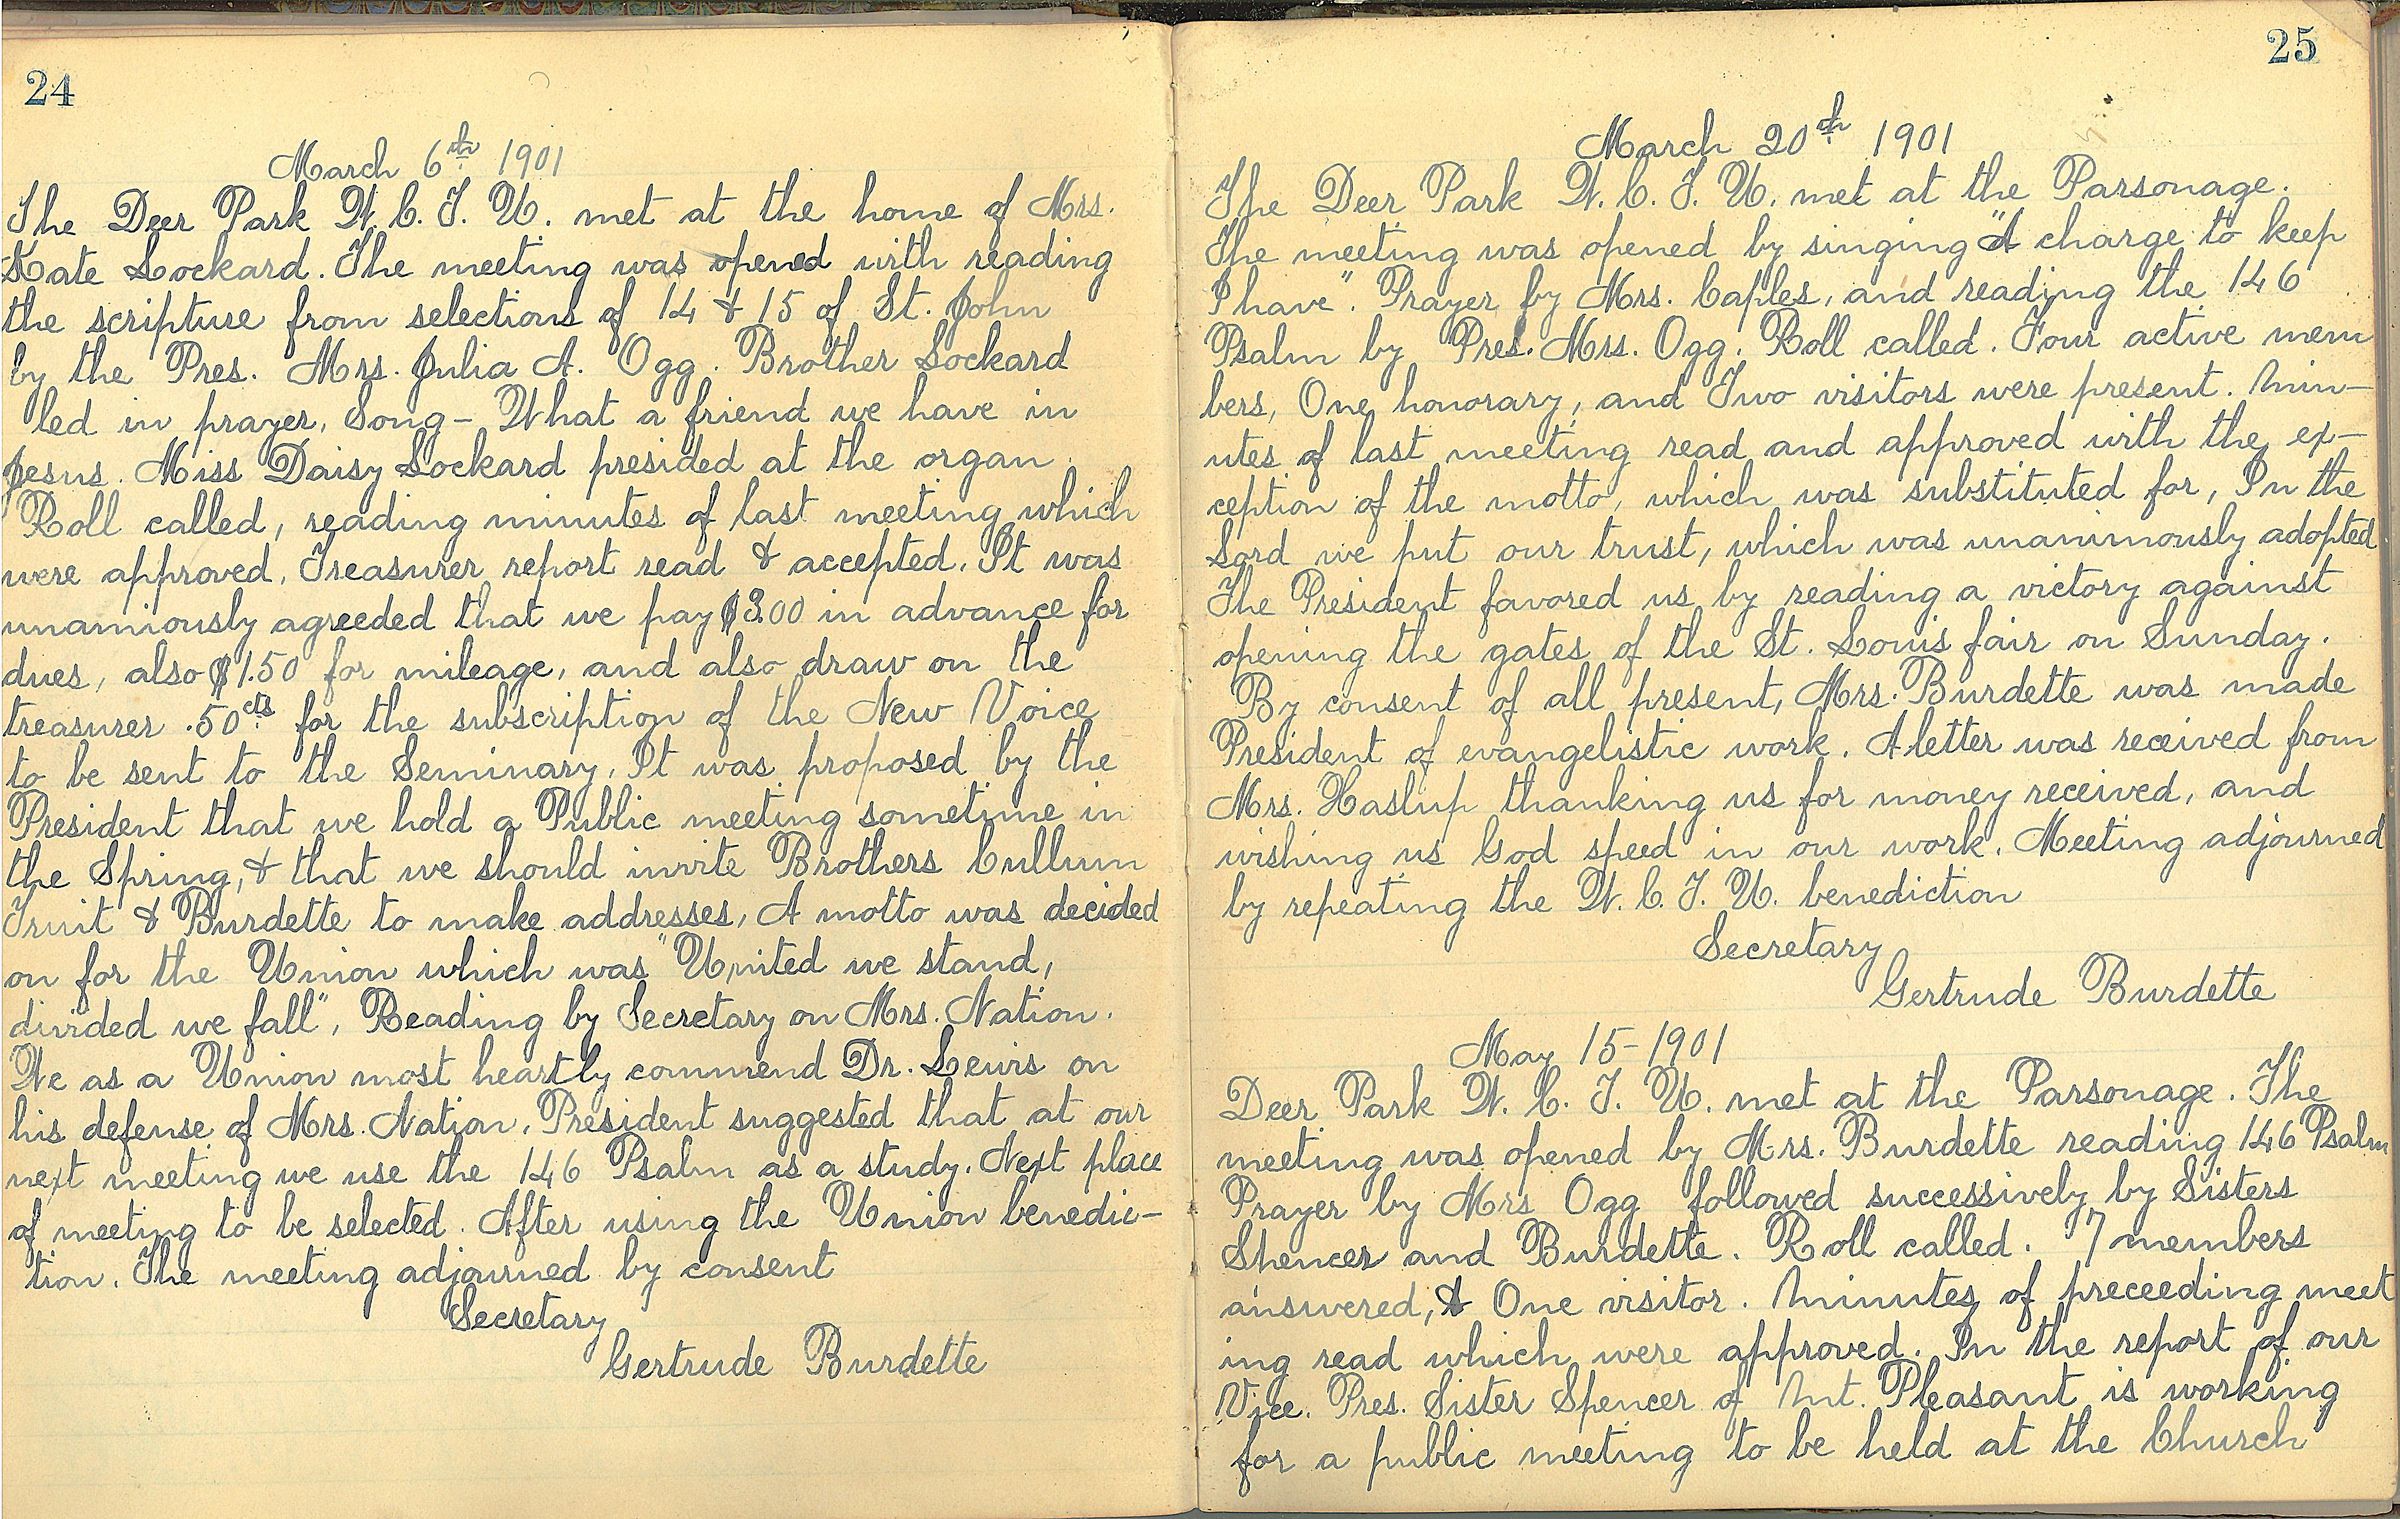 24
March 6th 1901
The Deer Park W. C. T. U. met at the home of Mrs.
Kate Lockard. The meeting was opened with reading
the scripture from selections of 14 & 15 of St. John
by the Pres. Mrs. Julia A. Ogg. Brother Lockard
led in prayer, Song - What a friend we have in
Jesus. Miss Daisy Lockard presided at the organ.
Roll called, reading minutes of last meeting which
were approved, Treasurer report read & accepted. It was
unamiously agreeded that we pay $3.00 in advance for
dues, also $1.50 for mileage, and also draw on the
treasurer .50cts for the subscription of the New Voice
to be sent to the Seminary. It was proposed by the
President that we hold a Public meeting sometime in
the Spring, & that we should invite Brothers Cullum
Truit & Burdette to make addresses, A motto was decided
on for the Union which was "United we stand,
divided we fall", Reading by Secretary on Mrs. Nation.
We as a Union most heartly commend Dr. Lewis on
his defense of Mrs. Nation. President suggested that at our
next meeting we use the 146 Psalm as a study. Next place
of meeting to be selected. After using the Union benedic-
tion. The meeting adjourned by consent
Secretary
Gertrude Burdette
25
March 20th 1901
The Deer Park W. C. T. U. met at the Parsonage.
The meeting was opened by singing "A charge to keep
I have". Prayer by Mrs. Caples, and reading the 146
Psalm by Pres. Mrs. Ogg. Roll called. Four active mem
bers, One honorary, and Two visitors were present. Min-
utes of last meeting read and approved with the ex-
ception of the motto, which was substituted for, In the
Lord we put our trust, which was unanimously adopted
The President favored us by reading a victory against
opening the gates of the St. Louis fair on Sunday.
By consent of all present, Mrs. Burdette was made
President of evangelistic work. A letter was received from
Mrs. Haslup thanking us for money received, and
wishing us God speed in our work. Meeting adjourned
by repeating the W. C. T. U. benediction
Secretary
Gertrude Burdette
May 15-1901
Deer Park W. C. T. U. met at the Parsonage. The
meeting was opened by Mrs. Burdette reading 146 Psalm
Prayer by Mrs Ogg followed successively by Sisters
Spencer and Burdette. Roll called. 7 members
answered, & One visitor. Minutes of preceeding meet
ing read which were approved. In the report of our
Vice. Pres. Sister Spencer of Mt. Pleasant is working
for a public meeting to be held at the Church